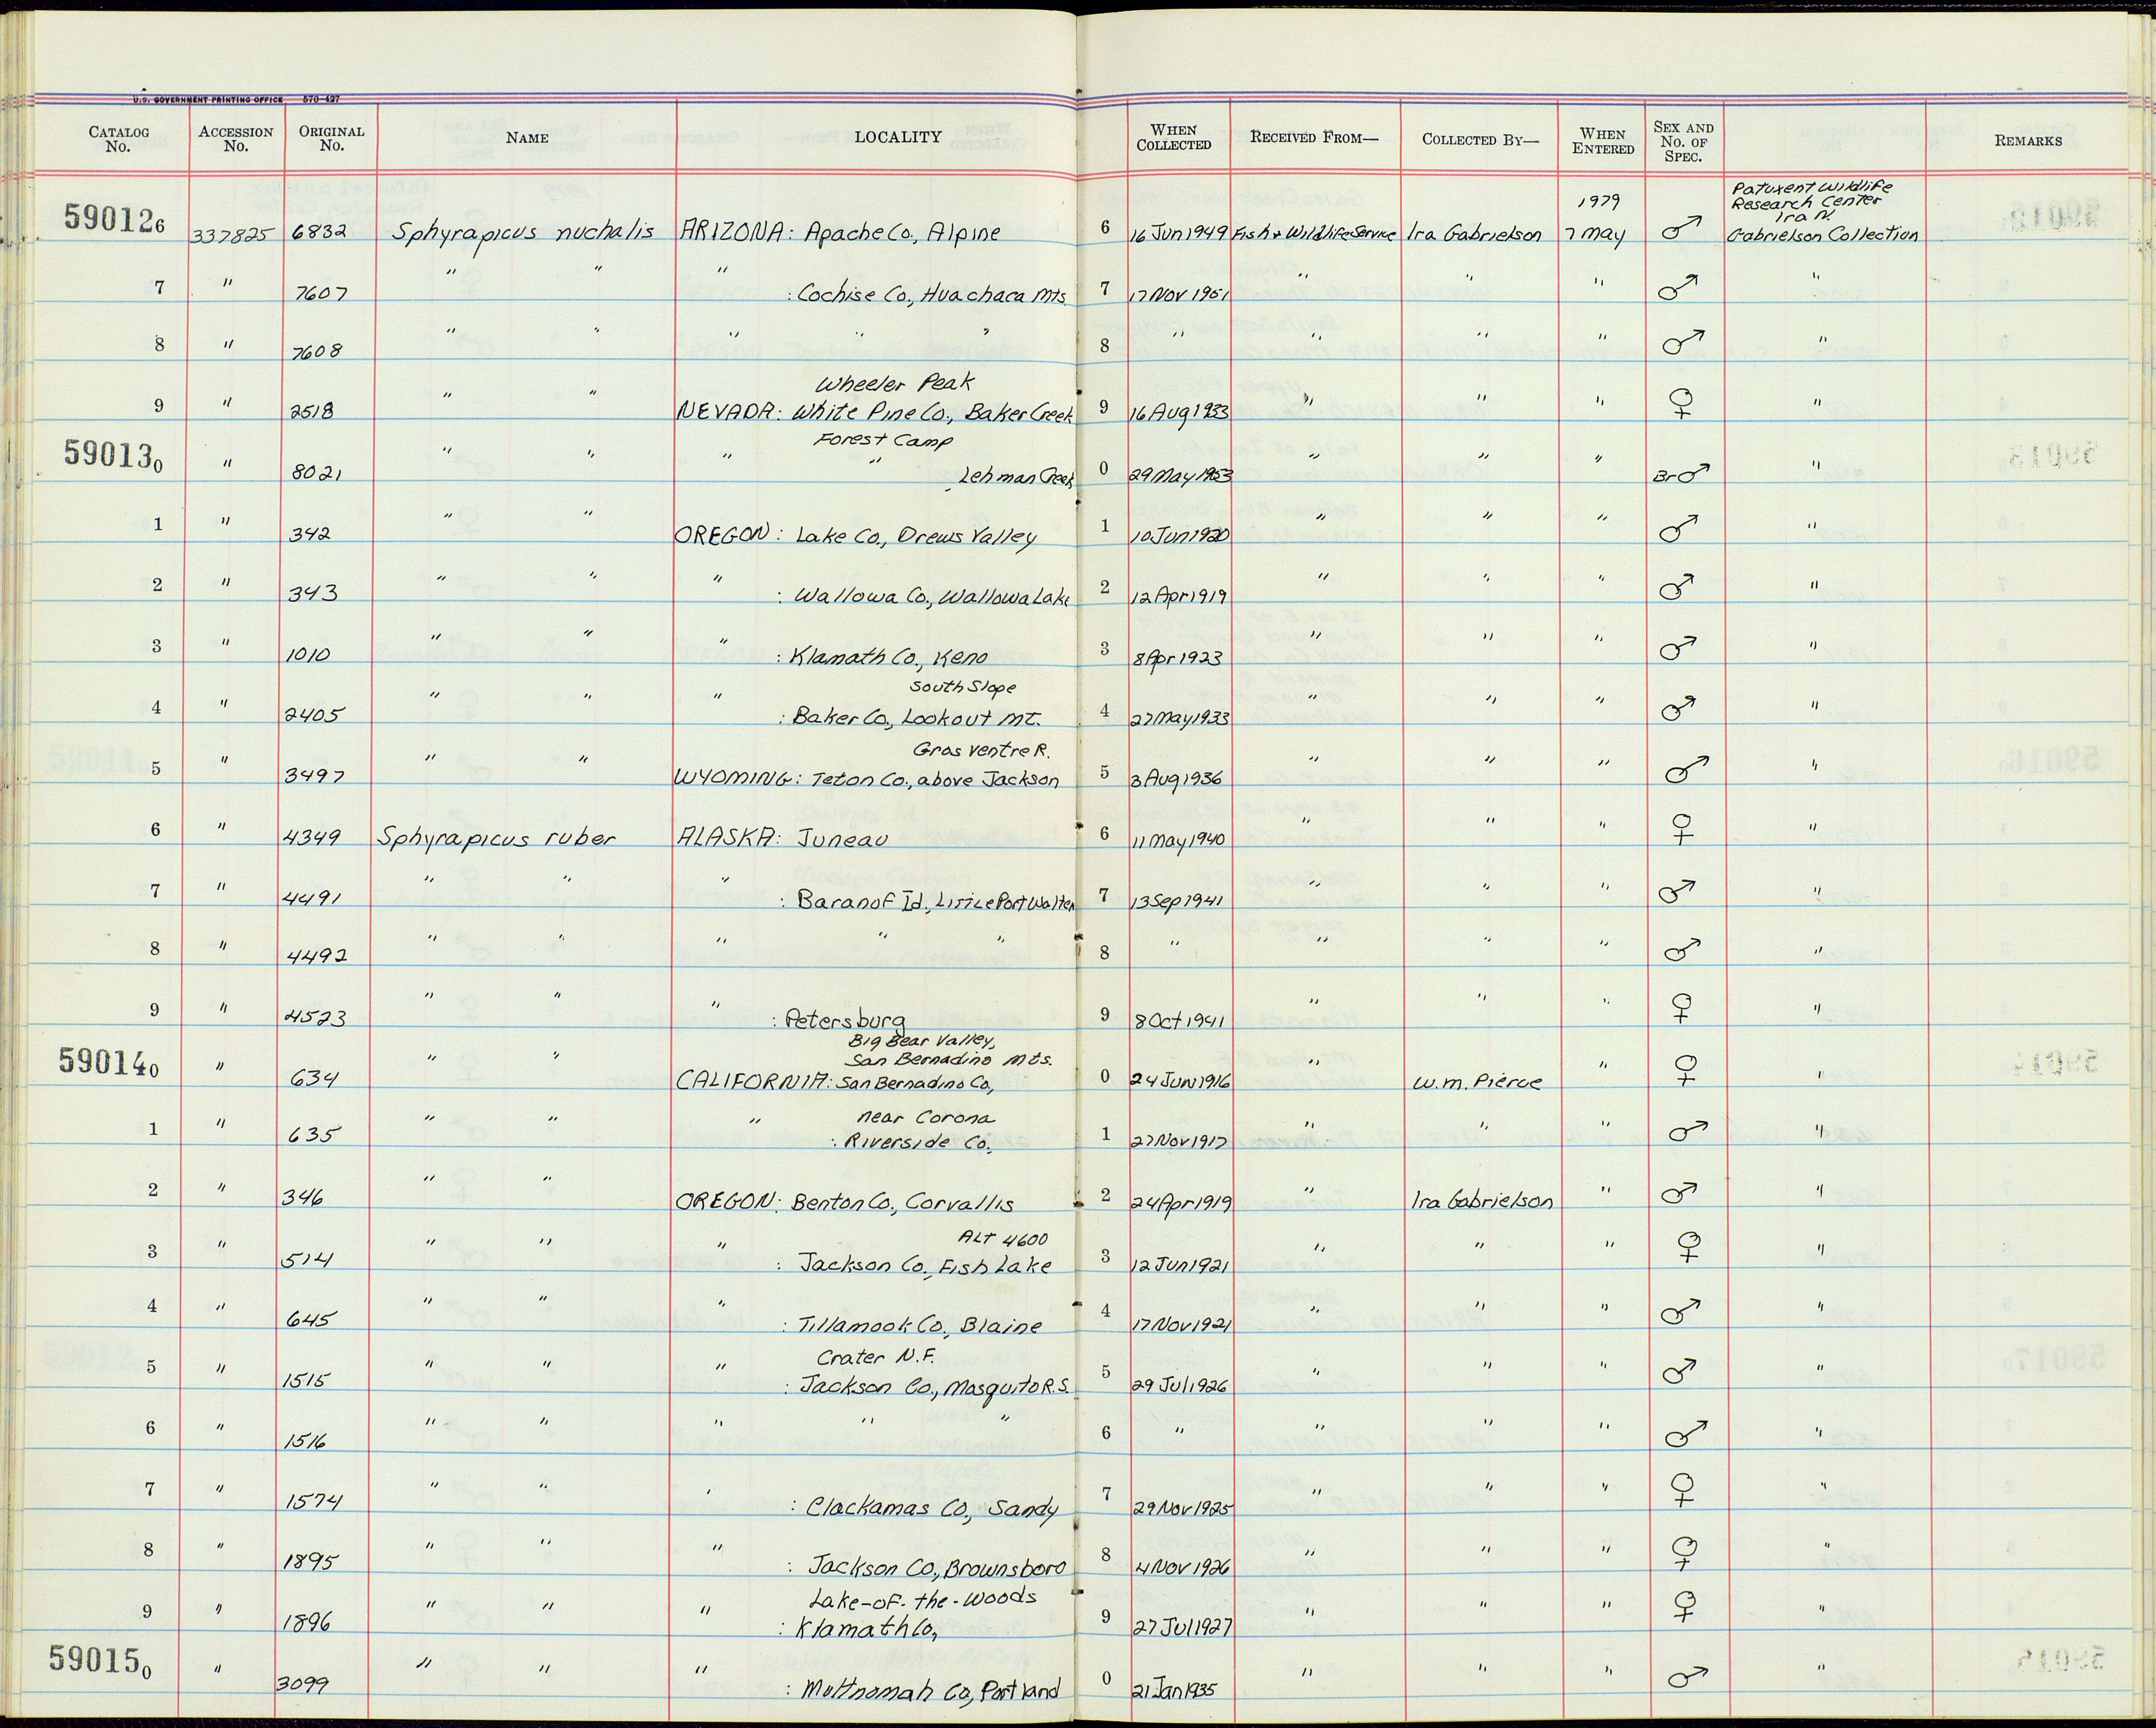 U.S. GOVERNMENT PRINTING OFFICE 570-427
CATALOG No. ACCESSION No. ORIGINAL No. NAME LOCALITY WHEN COLLECTED RECEIVED FROM— COLLECTED BY— WHEN ENTERED SEX AND No. OF SPEC. REMARKS
590126 337825 6832 Sphyrapicus nuchalis ARIZONA: Apache Co., Alpine 6 16 Jun 1949 Fish & Wildlife Service Ira Gabrielson 1979 7 May ♂ Patuxent Wildlife Research Center Ira N. Gabrielson Collection
7 " 7607 " " " : Cochise Co., Huachaca Mts 7 17 Nov 1951 " " " ♂ "
8 " 7608 " " " " " 8 " " " " ♂ "
Wheeler Peak
9 " 2518 " " NEVADA: White Pine Co., Baker Creek 9 16 Aug 1933 " " " ♀ "
Forest Camp
590130 " 8021 " " " " Lehman Creek 0 29 May 1953 " " " Br♂ "
1 " 342 " " OREGON: Lake Co., Drews Valley 1 10 Jun 1920 " " " ♂ "
2 " 343 " " " : Wallowa Co., Wallowa Lake 2 12 Apr 1919 " " " ♂ "
3 " 1010 " " " : Klamath Co., Keno 3 8 Apr 1923 " " " ♂ "
South Slope
4 " 2405 " " " : Baker Co., Lookout Mt. 4 27 May 1933 " " " ♂ "
Gros Ventre R.
5 " 3497 " " WYOMING: Teton Co., above Jackson 5 3 Aug 1936 " " " ♂ "
6 " 4349 Sphyrapicus ruber ALASKA: Juneau 6 11 May 1940 " " " ♀ "
7 " 4491 " " " : Baranof Id., Port Walter 7 13 Sep 1941 " " " ♂ "
8 " 4492 " " " " " 8 " " " " ♂ "
9 " 4523 " " " : Petersburg 9 8 Oct 1941 " " " ♀ "
Big Bear Valley,
San Bernadino Mts.
590140 " 634 " " CALIFORNIA: San Bernadino Co, 0 24 Jun 1916 " W.M. Pierce " ♀ "
near Corona
1 " 635 " " " : Riverside Co. 1 27 Nov 1917 " " " ♂ "
2 " 346 " " OREGON: Benton Co., Corvallis 2 24 Apr 1919 " Ira Gabrielson " ♂ "
ALT 4600
3 " 514 " " " : Jackson Co., Fish Lake 3 12 Jun 1921 " " " ♀ "
4 " 645 " " " : Tillamook Co., Blaine 4 17 Nov 1921 " " " ♂ "
Crater N.F.
5 " 1515 " " " : Jackson Co., Mosquito R.S. 5 29 Jul 1926 " " " ♂ "
6 " 1516 " " " " " 6 " " " " ♂ "
7 " 1574 " " " : Clackamas Co., Sandy 7 29 Nov 1925 " " " ♀ "
8 " 1895 " " " : Jackson Co., Brownsboro 8 4 Nov 1926 " " " ♀ "
Lake-of-the-Woods
9 " 1896 " " " : Klamath Co, 9 27 Jul 1927 " " " ♀ "
590150 " 3099 " " " : Multnomah Co, Portland 0 21 Jan 1935 " " " ♂ "